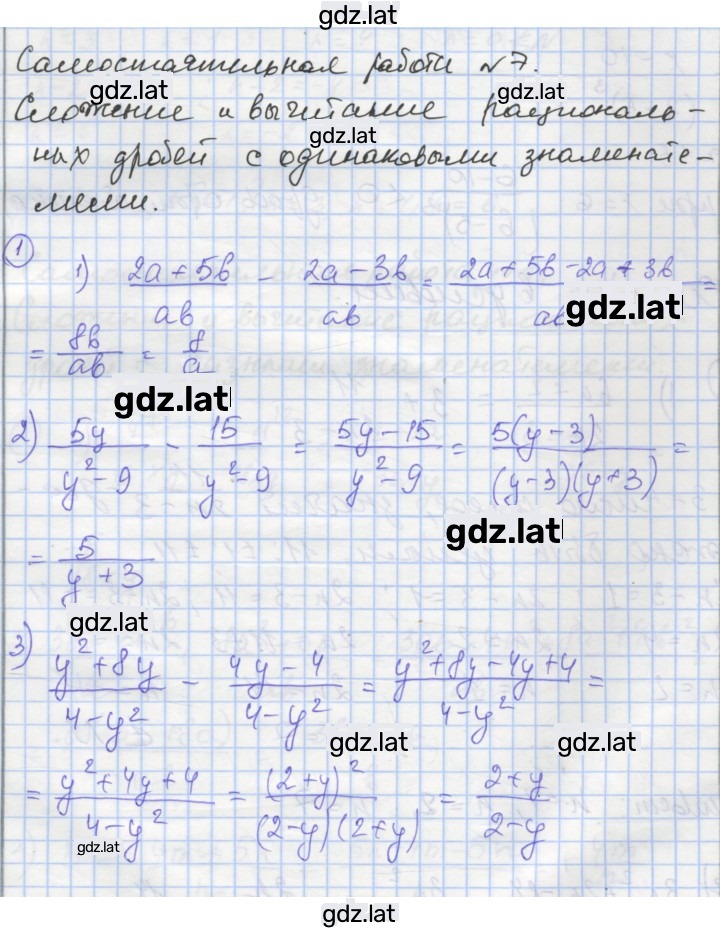 gdz.lat
Самостоятельная работа №7.
gdz.lat
Сложение и вычитание рациональ-
gdz.lat
ных дробей с одинаковыми знаменате-
лями.
1
1) (2a+5b)/(ab) - (2a-3b)/(ab) = (2a+5b-2a+3b)/(ab) =
gdz.lat
= (8b)/(ab) = 8/a
gdz.lat
2) (5y)/(y²-9) - 15/(y²-9) = (5y-15)/(y²-9) = (5(y-3))/((y-3)(y+3)) =
gdz.lat
= 5/(y+3)
gdz.lat
3) (y²+8y)/(4-y²) - (4y-4)/(4-y²) = (y²+8y-4y+4)/(4-y²) =
gdz.lat gdz.lat
= (y²+4y+4)/(4-y²) = ((2+y)²)/((2-y)(2+y)) = (2+y)/(2-y)
gdz.lat
gdz.lat